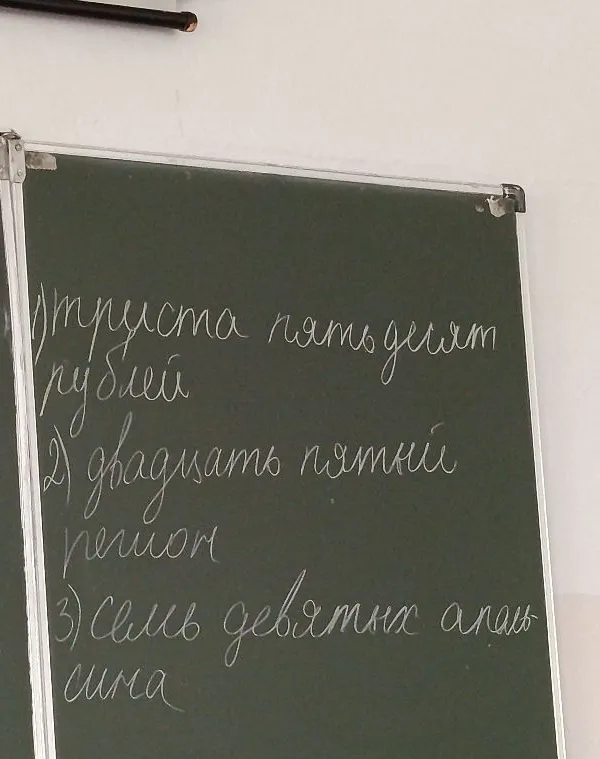 1) триста пятьдесят
рублей
2) двадцать пятый
регион
3) семь девятых апель-
сина